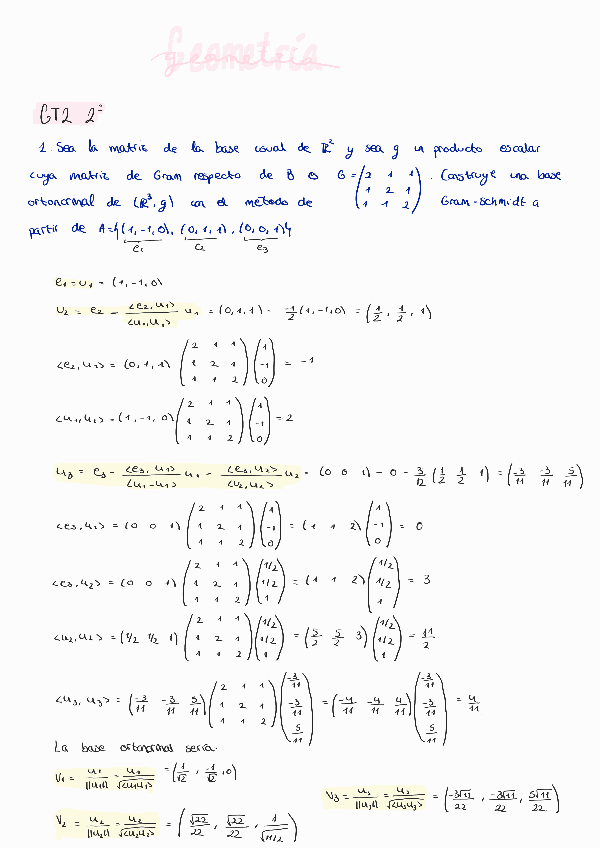 Geometría
GT2 2ª
1. Sea la matriz de la base usual de ℝ² y sea g un producto escalar
cuya matriz de Gram respecto de B es G=(2 1 1 / 1 2 1 / 1 1 2). Construye una base
ortonormal de (ℝ³, g) con el método de Gram-Schmidt a
partir de A={(1,-1,0), (0,1,1), (0,0,1)}
e₁ e₂ e₃
e₁=u₁ = (1,-1,0)
u₂ = e₂ - <e₂,u₁>/<u₁,u₁> u₁ = (0,1,1) - -1/2 (1,-1,0) = (1/2, 1/2, 1)
<e₂,u₁> = (0,1,1) (2 1 1 / 1 2 1 / 1 1 2) (1 / -1 / 0) = -1
<u₁,u₁> = (1,-1,0) (2 1 1 / 1 2 1 / 1 1 2) (1 / -1 / 0) = 2
u₃ = e₃ - <e₃,u₁>/<u₁-u₁> u₁ - <e₃,u₂>/<u₂,u₂> u₂ = (0 0 1) - 0 - 3/12 (1/2 1/2 1) = (-3/11 -3/11 5/11)
<e₃,u₁> = (0 0 1) (2 1 1 / 1 2 1 / 1 1 2) (1 / -1 / 0) = (1 1 2) (1 / -1 / 0) = 0
<e₃,u₂> = (0 0 1) (2 1 1 / 1 2 1 / 1 1 2) (1/2 / 1/2 / 1) = (1 1 2) (1/2 / 1/2 / 1) = 3
<u₂,u₂> = (1/2 1/2 1) (2 1 1 / 1 2 1 / 1 1 2) (1/2 / 1/2 / 1) = (5/2 5/2 3) (1/2 / 1/2 / 1) = 11/2
<u₃,u₃> = (-3/11 -3/11 5/11) (2 1 1 / 1 2 1 / 1 1 2) (-3/11 / -3/11 / 5/11) = (-4/11 -4/11 4/11) (-3/11 / -3/11 / 5/11) = 4/11
La base ortonormal sería.
V₁ = u₁/||u₁|| = u₁/√<u₁u₁> = (1/√2, -1/√2, 0)
V₃ = u₃/||u₃|| = u₃/√<u₃u₃> = (-3√11/22, -3√11/22, 5√11/22)
V₂ = u₂/||u₂|| = u₂/√<u₂u₂> = (√22/22, √22/22, 1/√11/2)